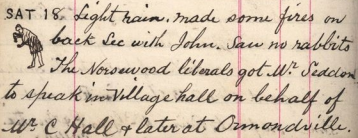 SAT 18. Light rain. made some fires on
back Sec with John. Saw no rabbits
The Norsewood liberals got Mr. Seddon
to speak in Village hall on behalf of
Mr C Hall & later at Ormondville.